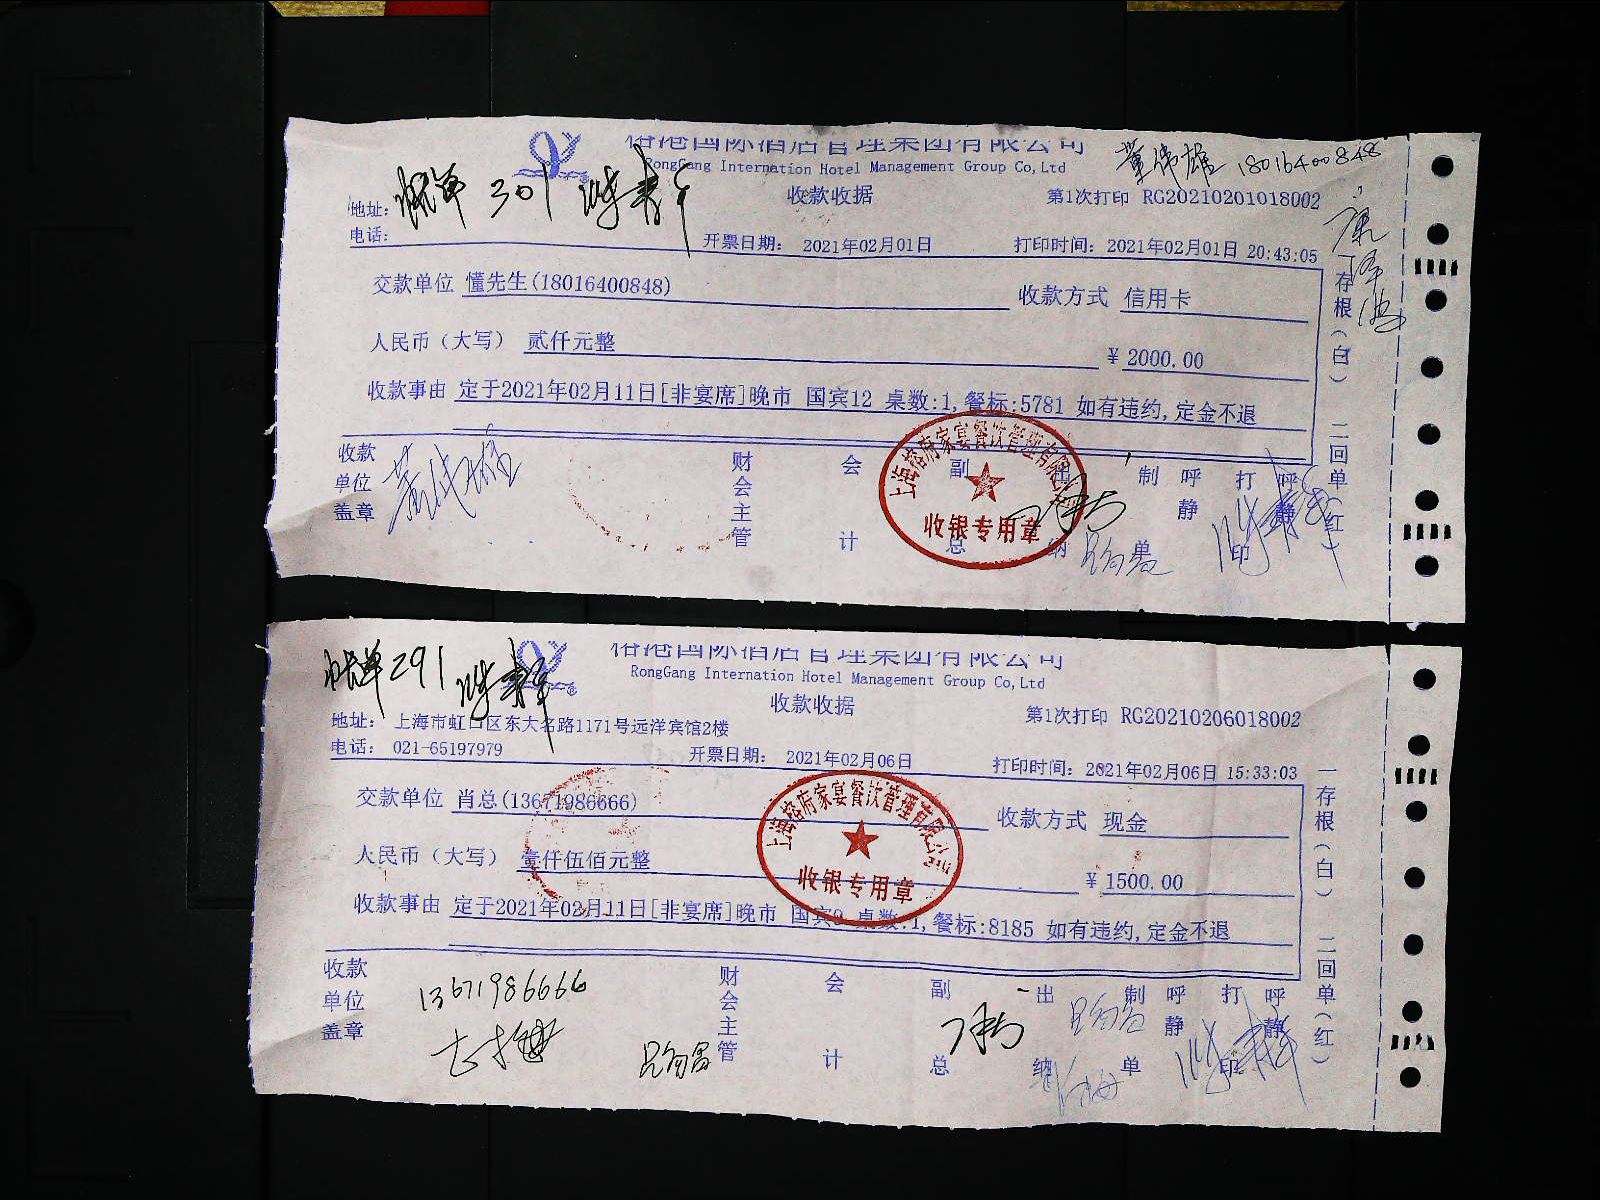 榕港国际酒店管理集团有限公司
RongGang Internation Hotel Management Group Co,Ltd
董伟雄 18016400848
收款收据
第1次打印 RG20210201018002
地址:
301
电话:
开票日期: 2021年02月01日
打印时间: 2021年02月01日 20:43:05
交款单位 懂先生(18016400848)
收款方式 信用卡
人民币(大写) 贰仟元整
¥ 2000.00
收款事由 定于2021年02月11日[非宴席]晚市 国宾12 桌数:1,餐标:5781 如有违约,定金不退
一存根(白) 二回单(红)
收款单位盖章
财会主管
会计
副总
出纳
制单
呼静
打印
呼静
上海榕府家宴餐饮管理有限公司
收银专用章
榕港国际酒店管理集团有限公司
RongGang Internation Hotel Management Group Co,Ltd
291
收款收据
第1次打印 RG20210206018002
地址: 上海市虹口区东大名路1171号远洋宾馆2楼
电话: 021-65197979
开票日期: 2021年02月06日
打印时间: 2021年02月06日 15:33:03
交款单位 肖总(13671986666)
收款方式 现金
人民币(大写) 壹仟伍佰元整
¥ 1500.00
收款事由 定于2021年02月11日[非宴席]晚市 国宾9 桌数:1,餐标:8185 如有违约,定金不退
一存根(白) 二回单(红)
上海榕府家宴餐饮管理有限公司
收银专用章
收款单位盖章
13671986666
财会主管
会计
副总
出纳
制单
呼静
打印
呼静